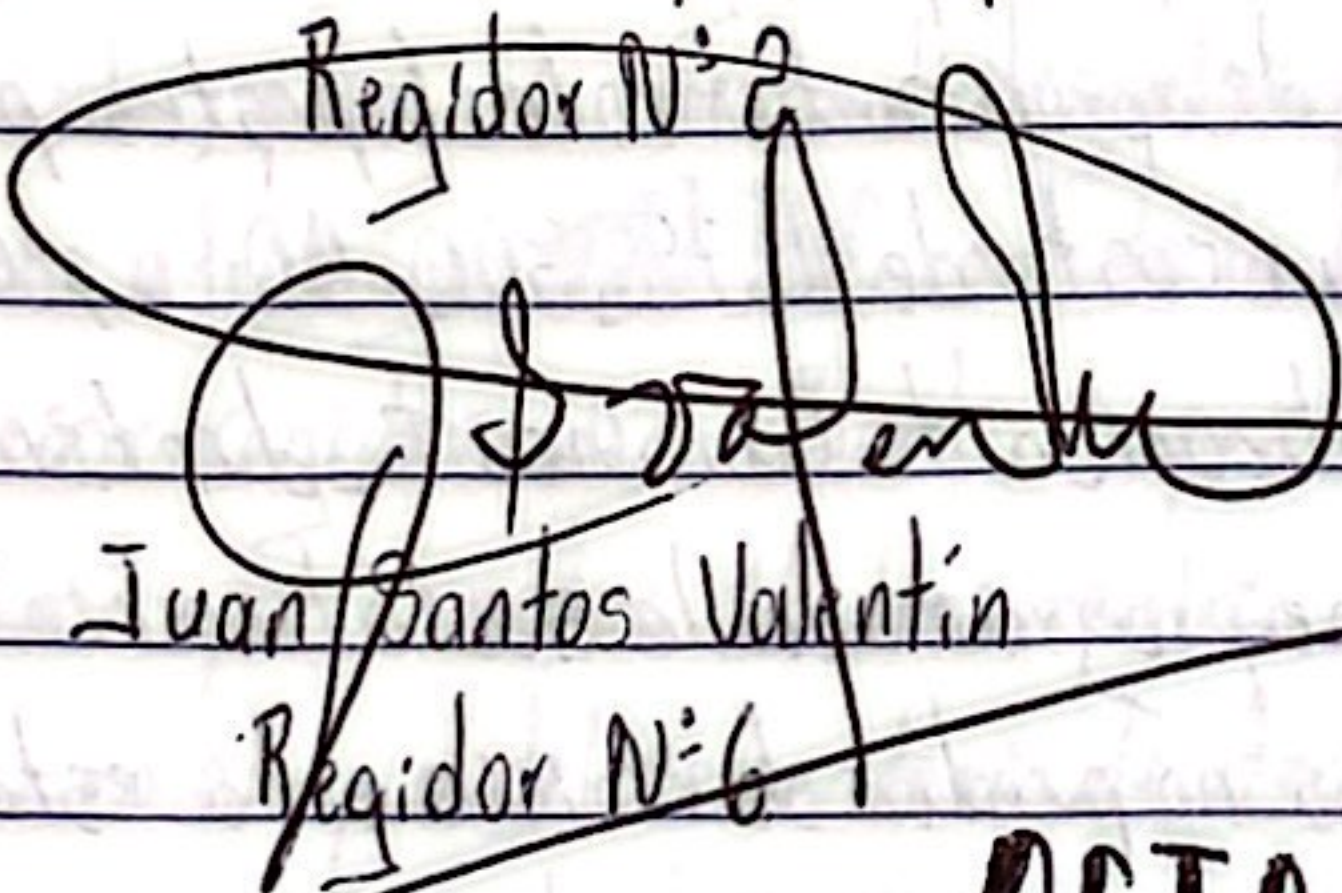 Regidor N° 2
Juan Santos Valentín
Regidor N° 6
ACTA